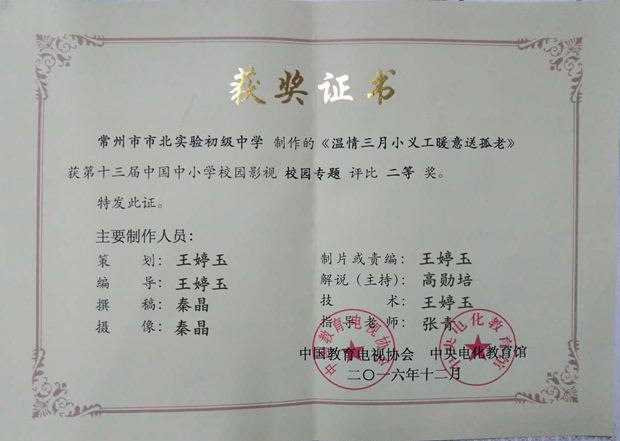 获奖证书
常州市市北实验初级中学 制作的《温情三月小义工暖意送孤老》
获第十三届中国中小学校园影视 校园专题 评比 二等 奖。
特发此证。
主要制作人员：
策 划：王婷玉
编 导：王婷玉
撰 稿：秦晶
摄 像：秦晶
制片或责编：王婷玉
解说（主持）：高勋培
技 术：王婷玉
指导老师：张青
中国教育电视协会 中央电化教育馆
二〇一六年十二月
中国教育电视协会
中央电化教育馆